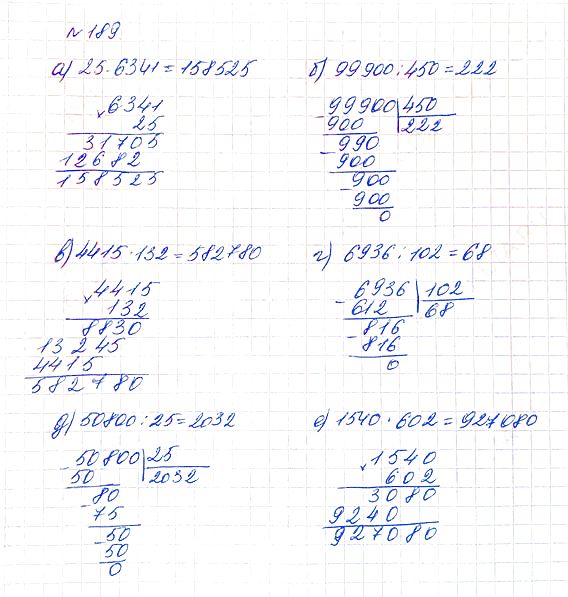 №189
а) 25·6341=158525
6341
× 25
31705
12682
158525
б) 99900:450=222
- 99900 450
900 222
- 990
900
- 900
900
0
в) 4415·132=582780
4415
× 132
8830
13245
4415
582780
г) 6936:102=68
- 6936 102
612 68
- 816
816
0
д) 50800:25=2032
- 50800 25
50 2032
- 80
75
- 50
50
0
е) 1540·602=927080
1540
× 602
3080
9240
927080